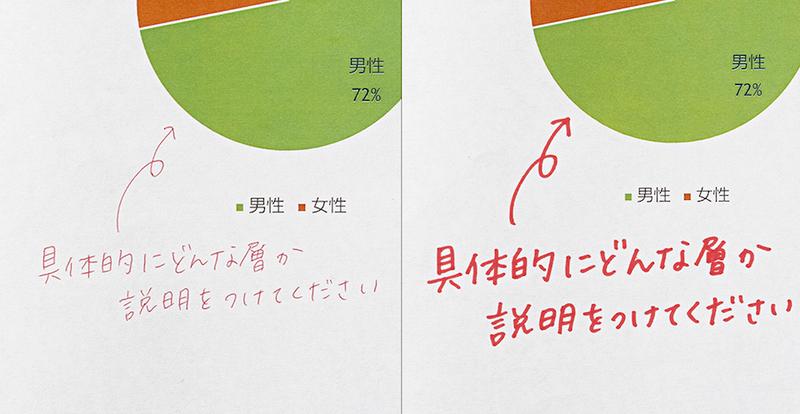 男性
72%
■男性 ■女性
具体的にどんな層か
説明をつけてください
男性
72%
■男性 ■女性
具体的にどんな層か
説明をつけてください